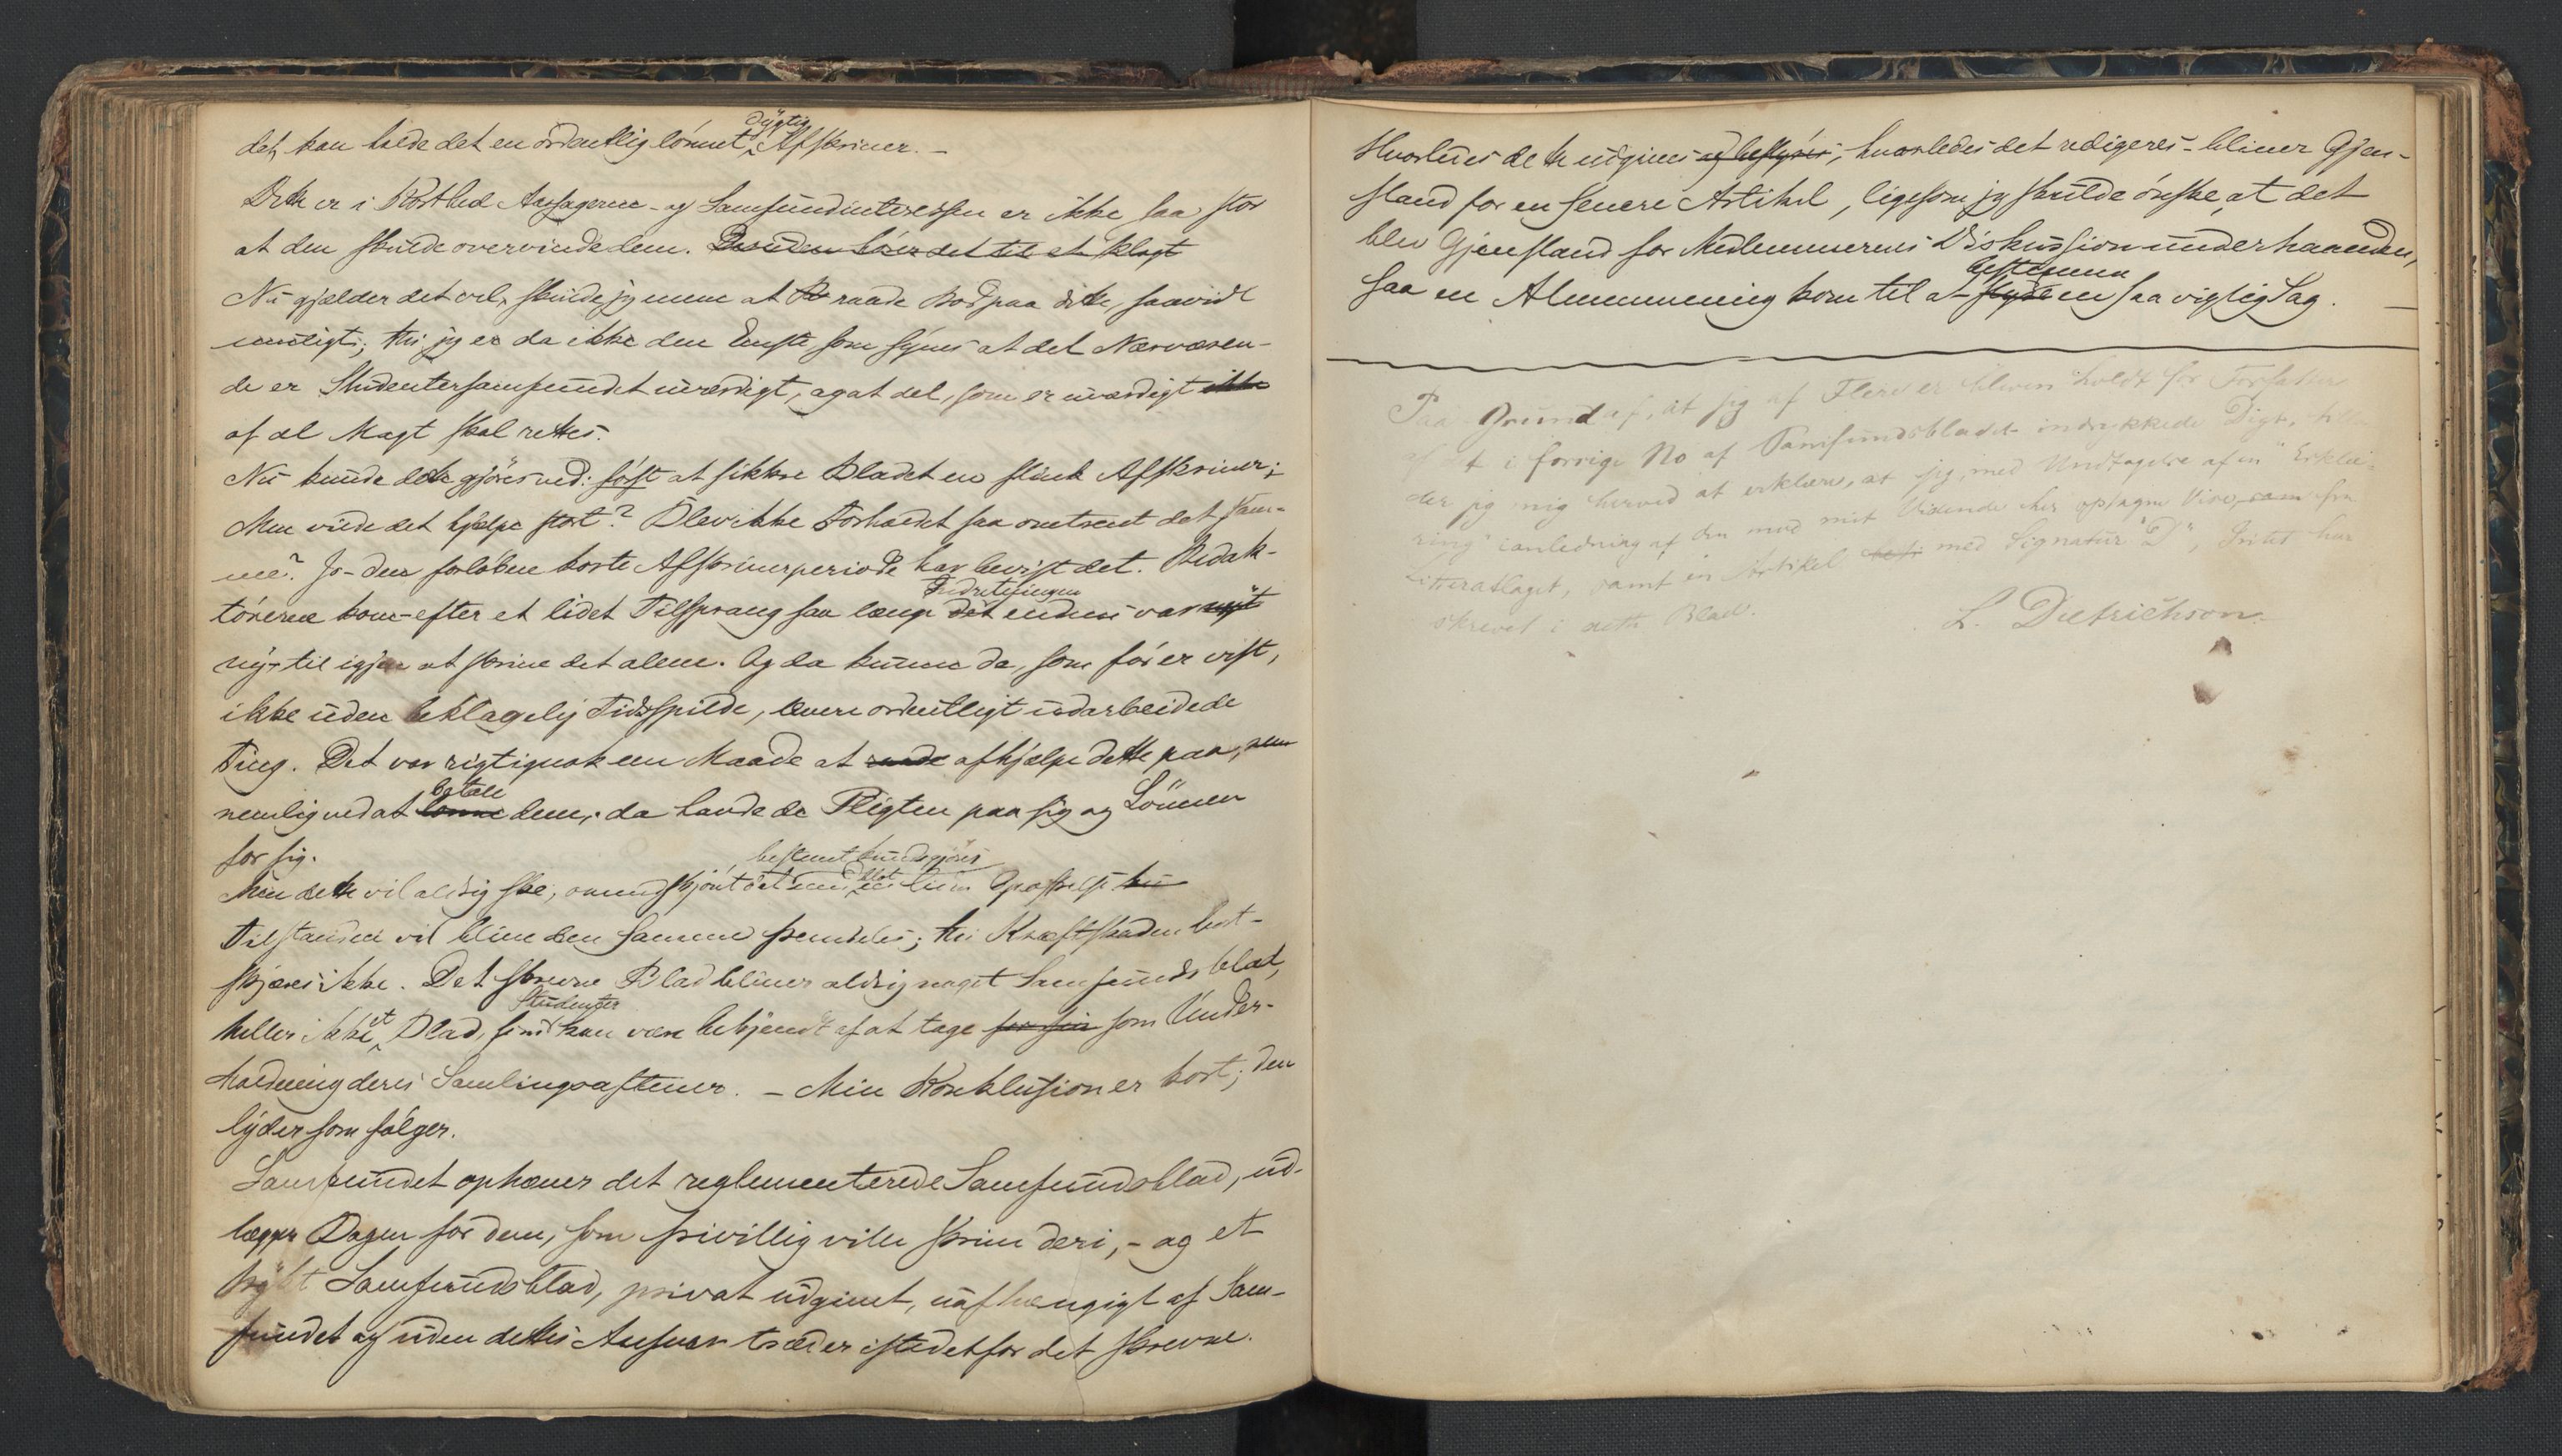 det, kan holde det en ordentlig lønnet dygtig Afskriver. –
Dette er i Korthed Aarsagerne – og Samfundsinteressen er ikke saa stor
at den skulde overvinde dem. Desuden hører det til et klogt
Nu gjælder det vel, skulde jeg mene at raade Bod paa dette, saavidt
muligt; thi jeg er da ikke den Eneste som synes at det Nærværen-
de er Studentersamfundet uværdigt, og at det, som er uværdigt ikke
af al Magt skal rettes.
Nu kunde dette gjøres ved: først at sikkre Bladet en flink Afskriver;
Men vilde det hjælpe stort? Blev ikke Forholdet saa omtrent det sam-
me? Jo – den forløbne korte Afskriverperiode har bevist det. Redak-
tørerne kom – efter et lidet Tilsprang saa længe Indretningen det endnu var nyt
ny, til igjen at skrive det alene. Og da kunne de, som før er vist,
ikke uden beklagelig Tidsspilde, levere ordentligt udarbeidede
Ting. Det var rigtignok en Maade at raade afhjælpe dette paa,
nemlig ved at betale lønne dem; da havde de Pligten paa sig og Lønnen
for sig.
Men dette vil aldrig ske, omendskjønt det bestemt kundgjøres blot
Tilstanden vil blive den samme fremdeles; thi Kræftskaden bort-
skjæres ikke. Det skrevne Blad bliver aldrig noget Samfundsblad,
heller ikke et Blad, Studenter kan være bekjendt af at tage for sin som Under-
holdning deres Samlingsaftener. – Min Konklusion er kort; den
lyder som følger.
Samfundet ophæver det reglementerede Samfundsblad, ud-
lægger Bogen for dem, som frivillig ville skrive deri, – og et
trykt Samfundsblad, privat udgivet, uafhængigt af Sam-
fundet og uden dettes Ansvar træder istedetfor det skrevne.
Hvorledes dette udgives og bestyres, hvorledes det redigeres – bliver Gjen-
stand for en senere Artikel, ligesom jeg skulde ønske, at det
blev Gjenstand for Medlemmernes Diskussion underhaanden,
saa en Almenmening kom til at bestemme styre en saa vigtig Sag. –
Paa Grund af, at jeg af Flere er bleven holdt for Forfatter
af et i forrige No af Samfundsbladet indrykkede Digt,
der jeg mig herved at erklære, at jeg, med Undtagelse af en "Erklæ-
ring" i anledning af den mod mit Vidende her optagne Vise, som fra
Litteratlaget, samt en Artikel med Signatur "D", Intet har
skrevet i dette Blad.
L. Dietrichson.